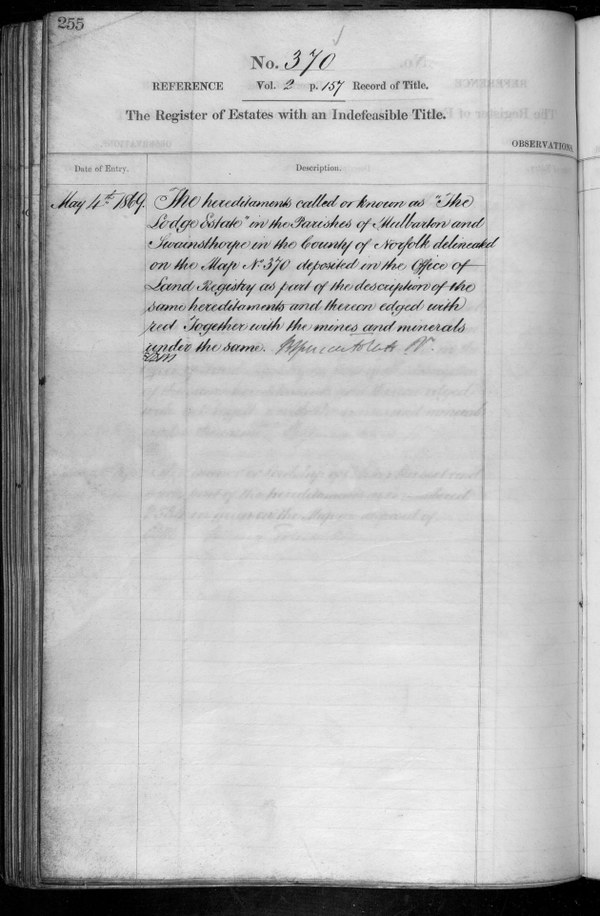 255
No. 370
REFERENCE Vol. 2 p. 157 Record of Title.
The Register of Estates with an Indefeasible Title.
OBSERVATIONS
Date of Entry. Description.
May 4th 1869. The hereditaments called or known as "The
Lodge Estate" in the Parishes of Mulbarton and
Swainsthorpe in the County of Norfolk delineated
on the Map No 370 deposited in the Office of
Land Registry as part of the description of the
same hereditaments and thereon edged with
red Together with the mines and minerals
under the same.